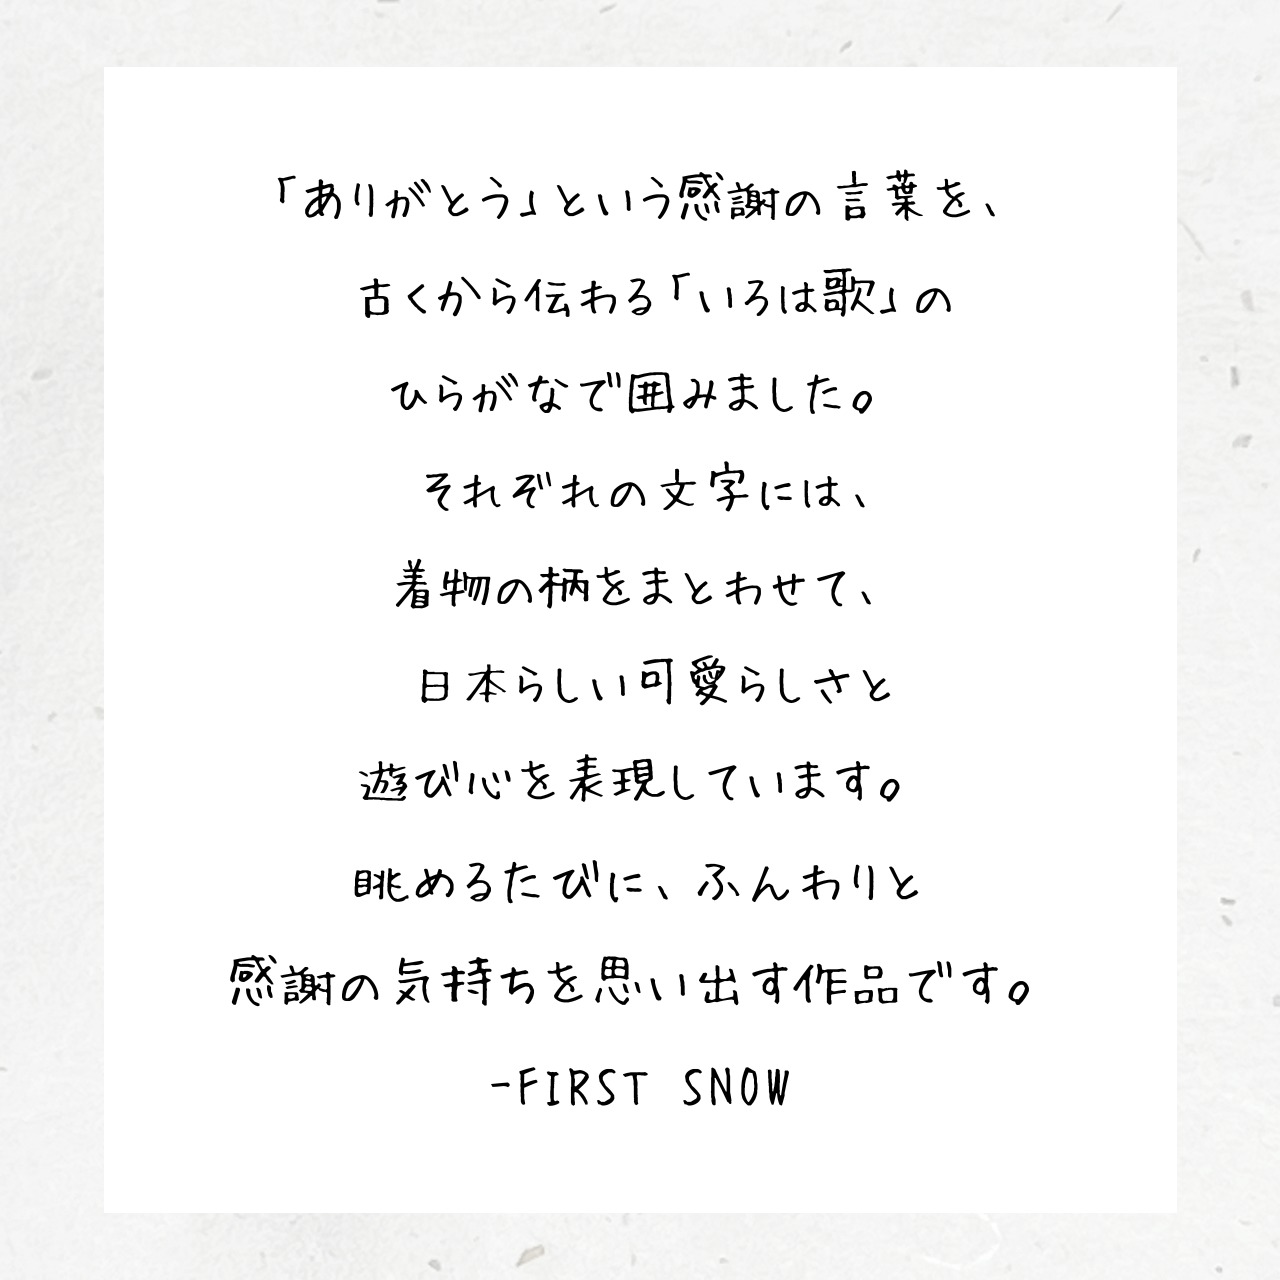 「ありがとう」という感謝の言葉を、
古くから伝わる「いろは歌」の
ひらがなで囲みました。
それぞれの文字には、
着物の柄をまとわせて、
日本らしい可愛らしさと
遊び心を表現しています。
眺めるたびに、ふんわりと
感謝の気持ちを思い出す作品です。
-FIRST SNOW